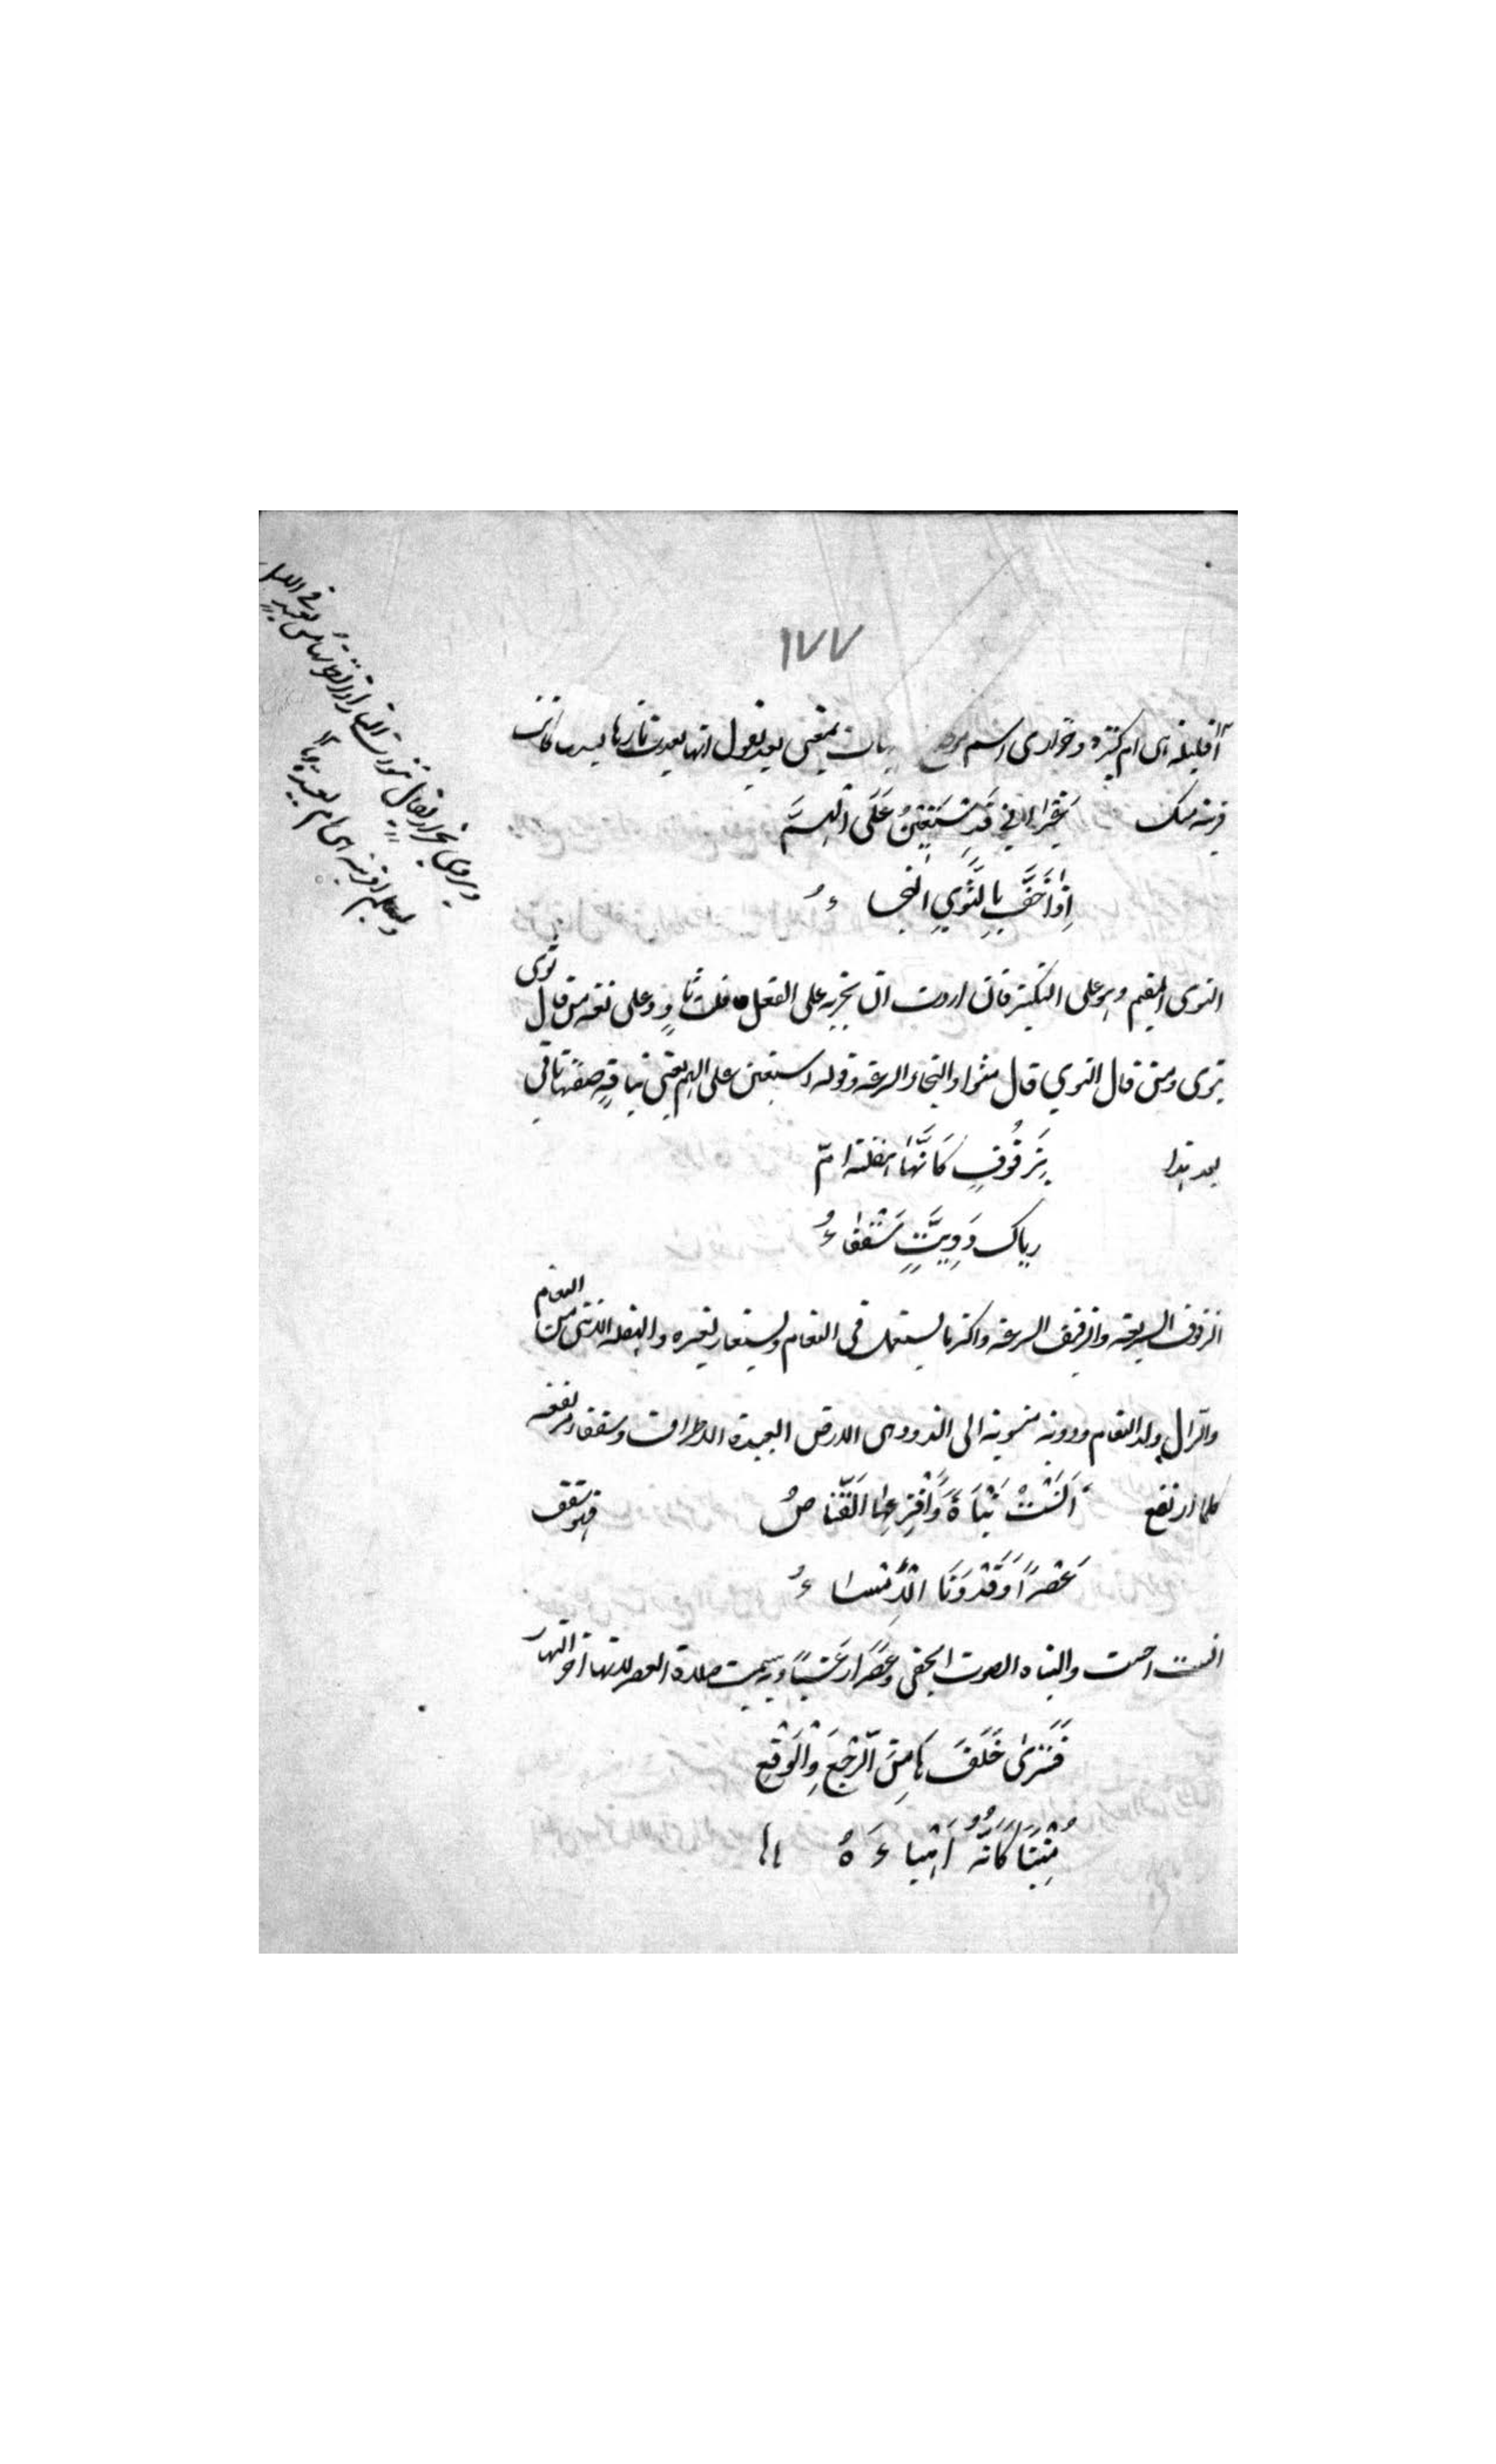 ١٧٧
أقليلة هي ام كثيرة وخوازى اسم موضع هيهات بمعنى بعد يقول انها بعدت نارها بعد ان كانت
قريبة منك غَيْرَ اَنّي قَد اَسْتَعِيْنُ عَلَى الْهَمِّ
اِذَا خَفَّ بِالثَّوِيِ النجاءُ
الثوى المقيم وهو على التكثير فان اردت ان تجريه على الفعل قلت ثاوٍ وعلى لغة من قال ثوى
يثوى ومن قال اثوى قال مثوا والنجاء السرعة وقوله استعين على الهم يعنى بناقةٍ صفتها تأتي
بعد هذا بِزَفُوفٍ كَاَنَّهَا هقلة امّ
ريال دَوِيَّةٍ سَقْفَاءُ
الزفوف السريعة والزفيف السرعة واكثر ما يستعمل في النعام ويستعار لغيره والهقلة الانثى من النعام
والرال ولد النعام ودوية منسوبة الى الدو وهى الارض البعيدة الاطراف وسقفاء مرتفعة
كلما ارتفع فهو سقف اَنَسَتْ نَبْاَةً وَاَفْزَعَهَا القَنَّاصُ
عَصْرًا وَقَدْ دَنَا الْاِمْسَاءُ
انست احست والنباه الصوت الخفي وعصرًا عَشيًا وبه سميت صلاة العصر لانها آخر النهار
فَتَرَى خَلْفَهَا مِنَ الرَّجْعِ وَالْوَقْعِ
مَنِيْنًا كَاَنَّهُ اَهْبَاءُ
ويروى بخزاز فقال تنورت النار اذا نظرتها من بعيد في الليل
ام بعيدة